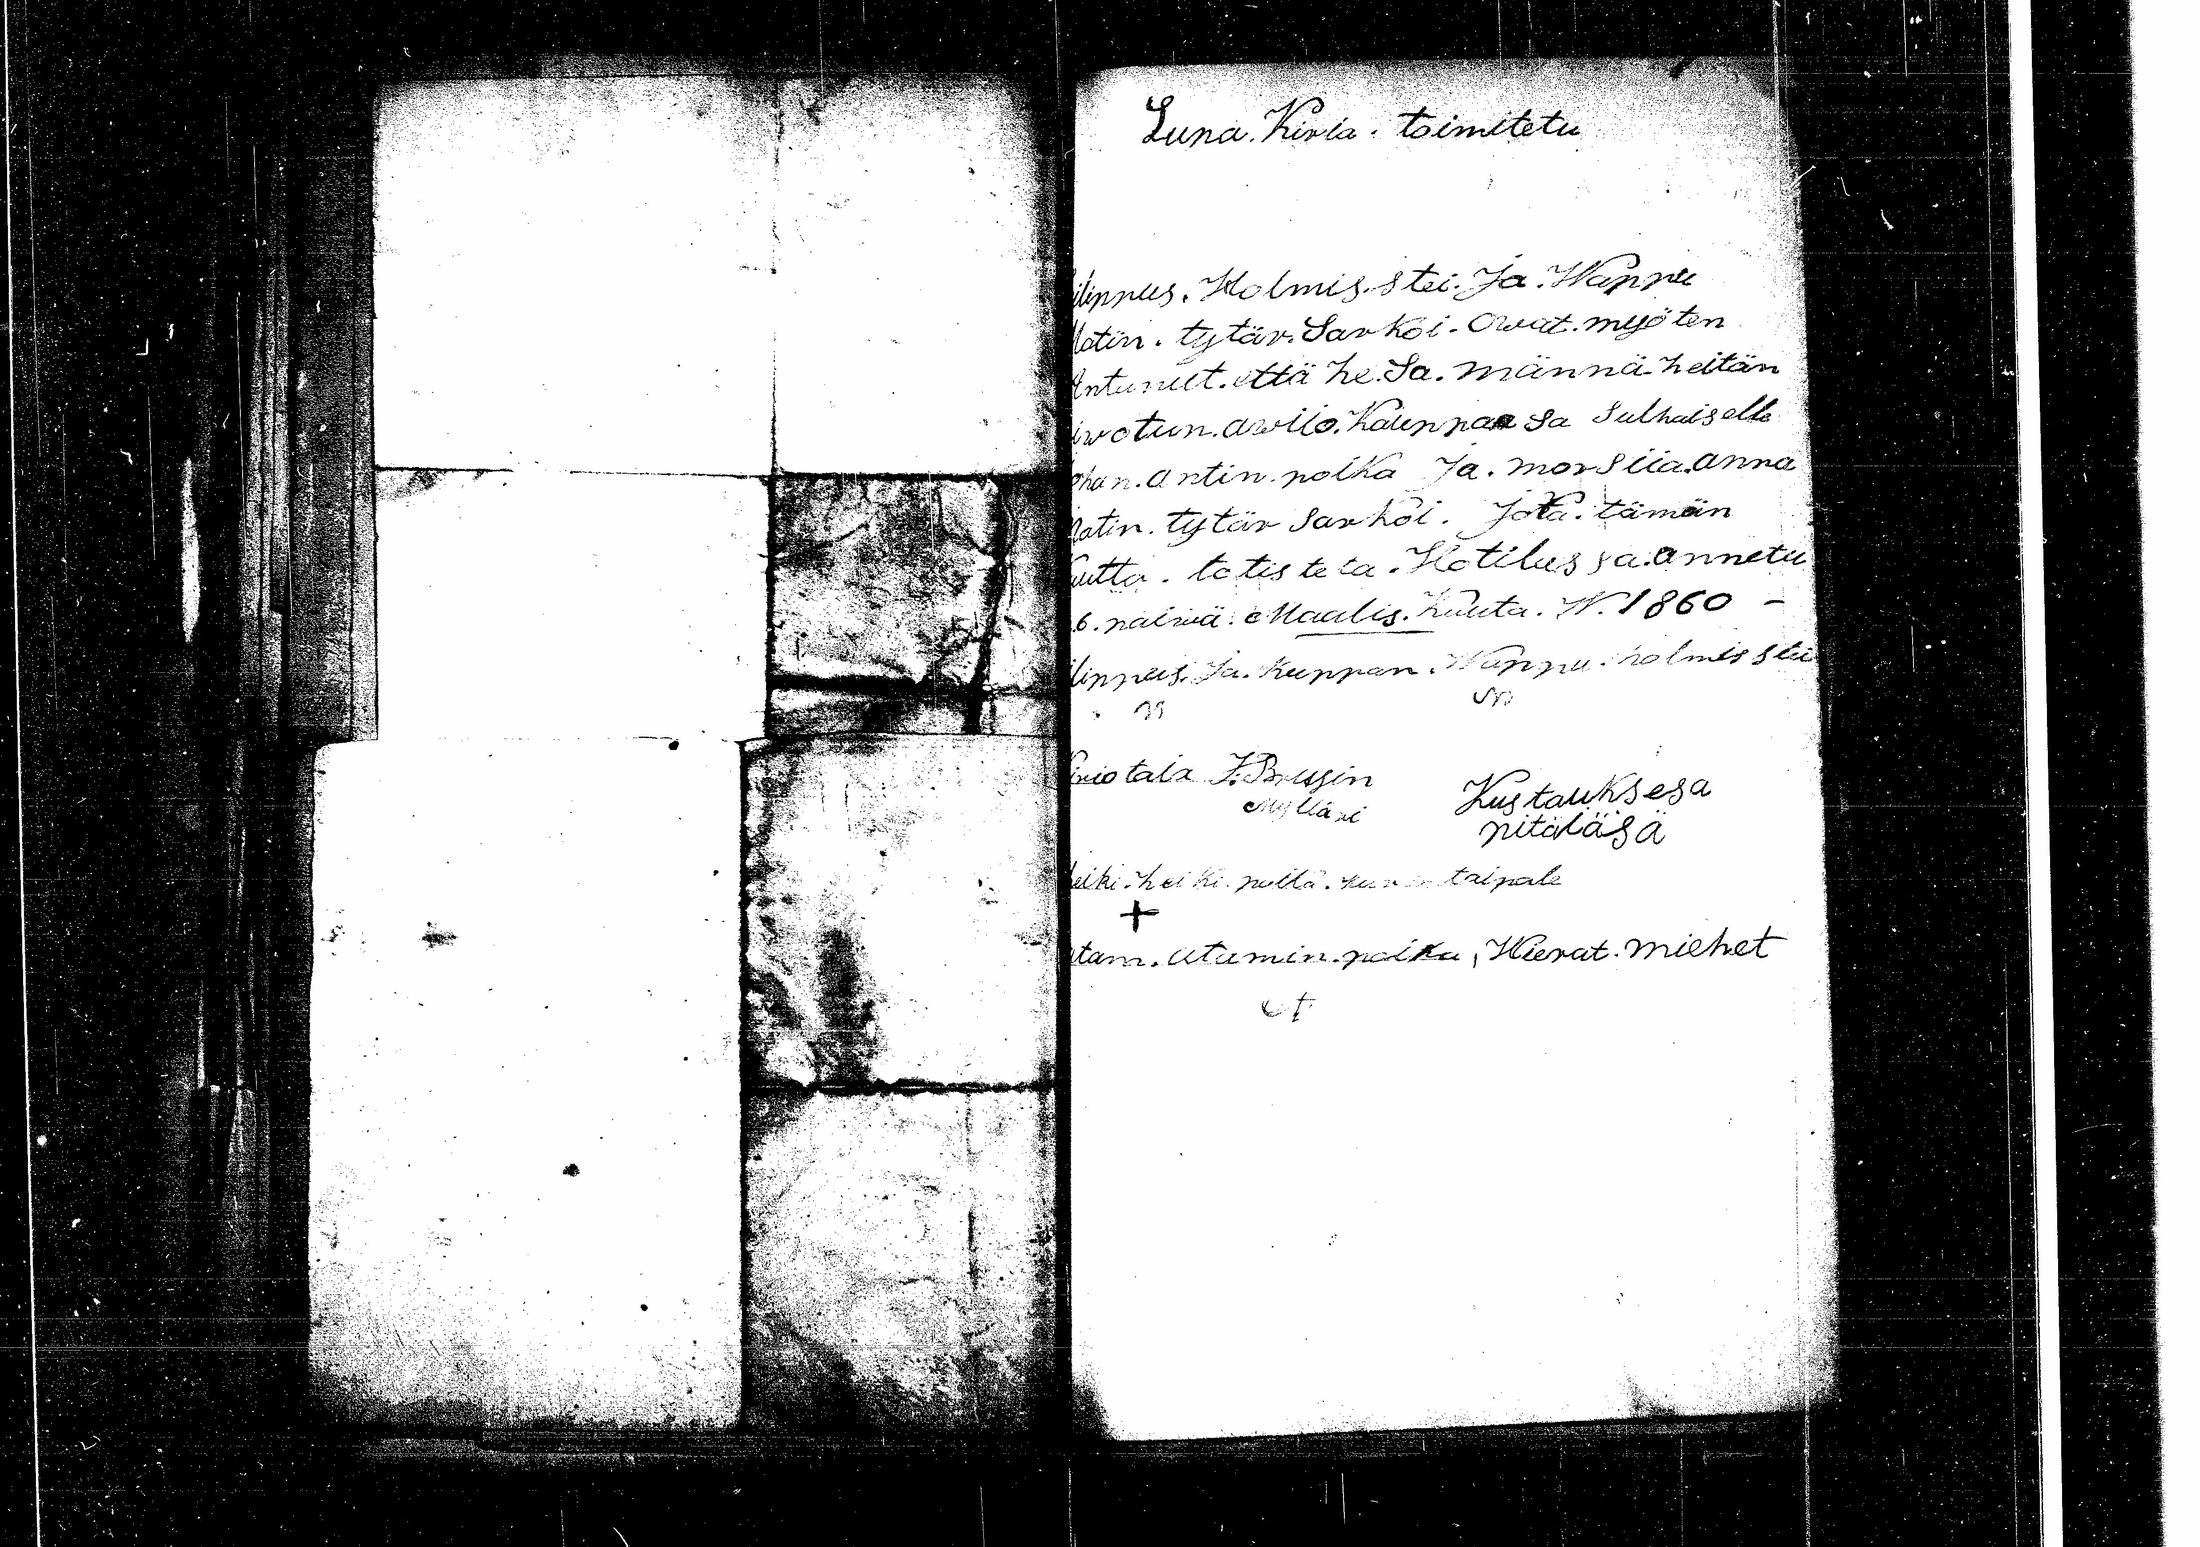 Luna. Kiria. toimitetu
ilippus. Holmis.stei. Ja. Wappu
Matin. tytär. Särköi. Owat. myöten
Antunut. että he. Sa. männä. heitän
iwotun. awiio. Kauppaa sa Sulhaiselle
ohan. antin. poika Ja. morsiia. anna
Matin. tytär Särköi. Jota. tämän
Kautta. totisteta. Hotilus sa. annetu
6. paiwä. Maalis. Kuuta. W. 1860 -
ilippus. Ja. Kuppan. Wappu. holmis stei
Kirio taia J. Brusin
Mylläri
Kustauksesa
pitäläsä
heiki. heiki. taipale
+
atam. atamin. poika, Hierat. miehet